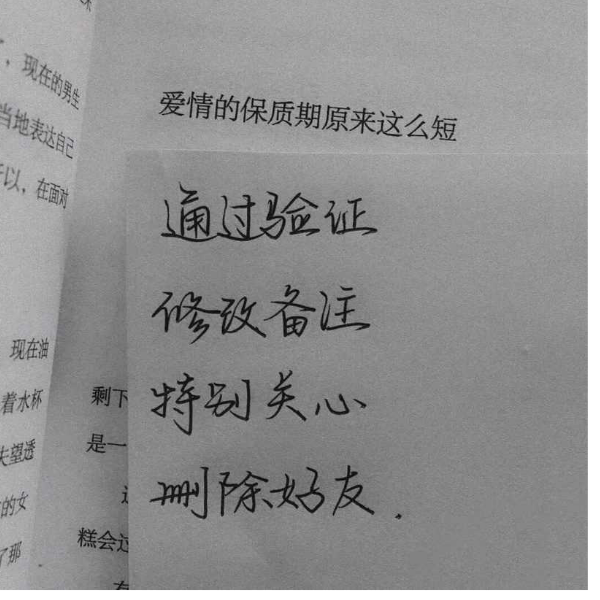 ，现在的男生
当地表达自己
以，在面对
现在油
着水杯
失望透
的女
了那
爱情的保质期原来这么短
通过验证
修改备注
特别关心
删除好友.
剩下
是一
糕会过